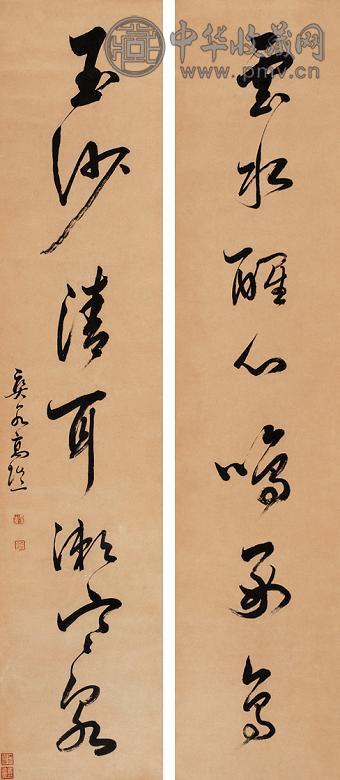 中华收藏网
www.pmv.cn
雲水醒心鳴好鳥
玉沙清耳漱寒泉
高